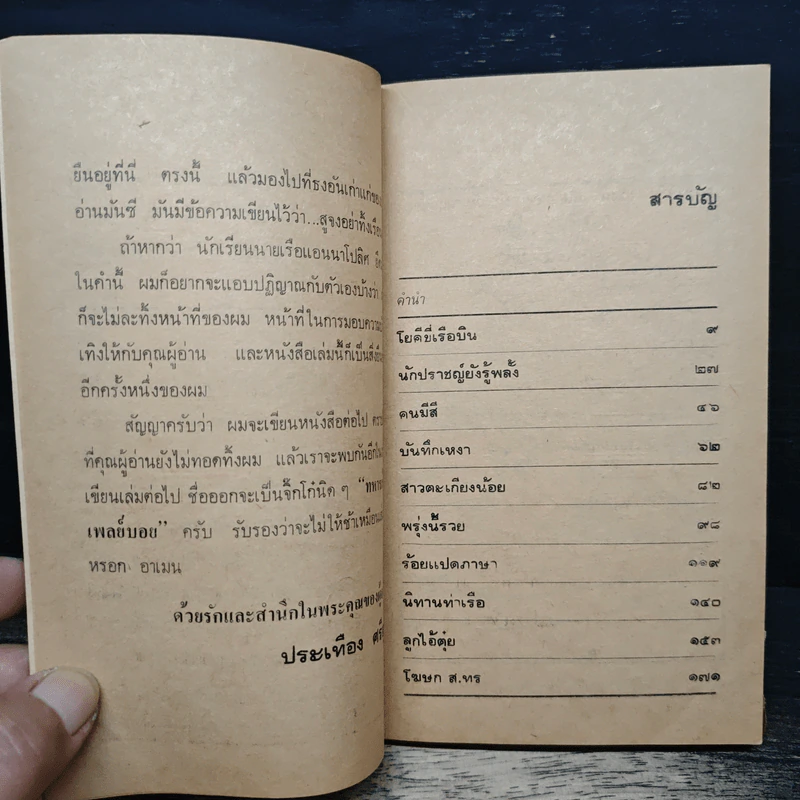 ยืนอยู่ที่นี่ ตรงนี้ แล้วมองไปที่ธงอันเก่าแก่ของ
อ่านมันซี มันมีข้อความเขียนไว้ว่า...สูจงอย่าทิ้งเรือ
ถ้าหากว่า นักเรียนนายเรือแอนนาโปลิศ
ในคำนี้ ผมก็อยากจะแอบปฏิญาณกับตัวเองบ้างว่า
ก็จะไม่ละทิ้งหน้าที่ของผม หน้าที่ในการมอบความ
เทิงให้กับคุณผู้อ่าน และหนังสือเล่มนี้ก็เป็น
อีกครั้งหนึ่งของผม
สัญญาครับว่า ผมจะเขียนหนังสือต่อไป
ที่คุณผู้อ่านยังไม่ทอดทิ้งผม แล้วเราจะพบกันอีก
เขียนเล่มต่อไป ชื่อออกจะเป็นจิ๊กโก๋นิด ๆ
เพลย์บอย" ครับ รับรองว่าจะไม่ให้ช้าเหมือน
หรอก อาเมน
ด้วยรักและสำนึกในพระคุณของ
ประเทือง
สารบัญ
คำนำ
โยคีขี่เรือบิน ๙
นักปราชญ์ยังรู้พลั้ง ๒๗
คนมีสี ๔๖
บันทึกเหงา ๖๒
สาวตะเกียงน้อย ๘๒
พรุ่งนี้รวย ๙๘
ร้อยแปดภาษา ๑๑๙
นิทานท่าเรือ ๑๔๐
ลูกไอ้ตุ๋ย ๑๕๓
โฆษก ส.ทร ๑๗๑